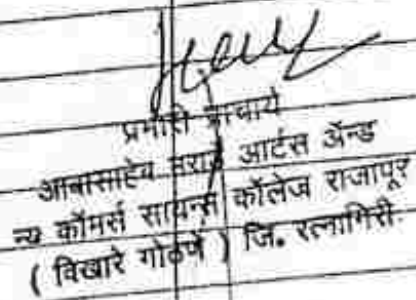 प्रभारी प्राचार्य
आबासाहेब मराठे आर्टस ॲन्ड
न्यु कॉमर्स सायन्स कॉलेज राजापूर
( विखारे गोठणे ) जि. रत्नागिरी